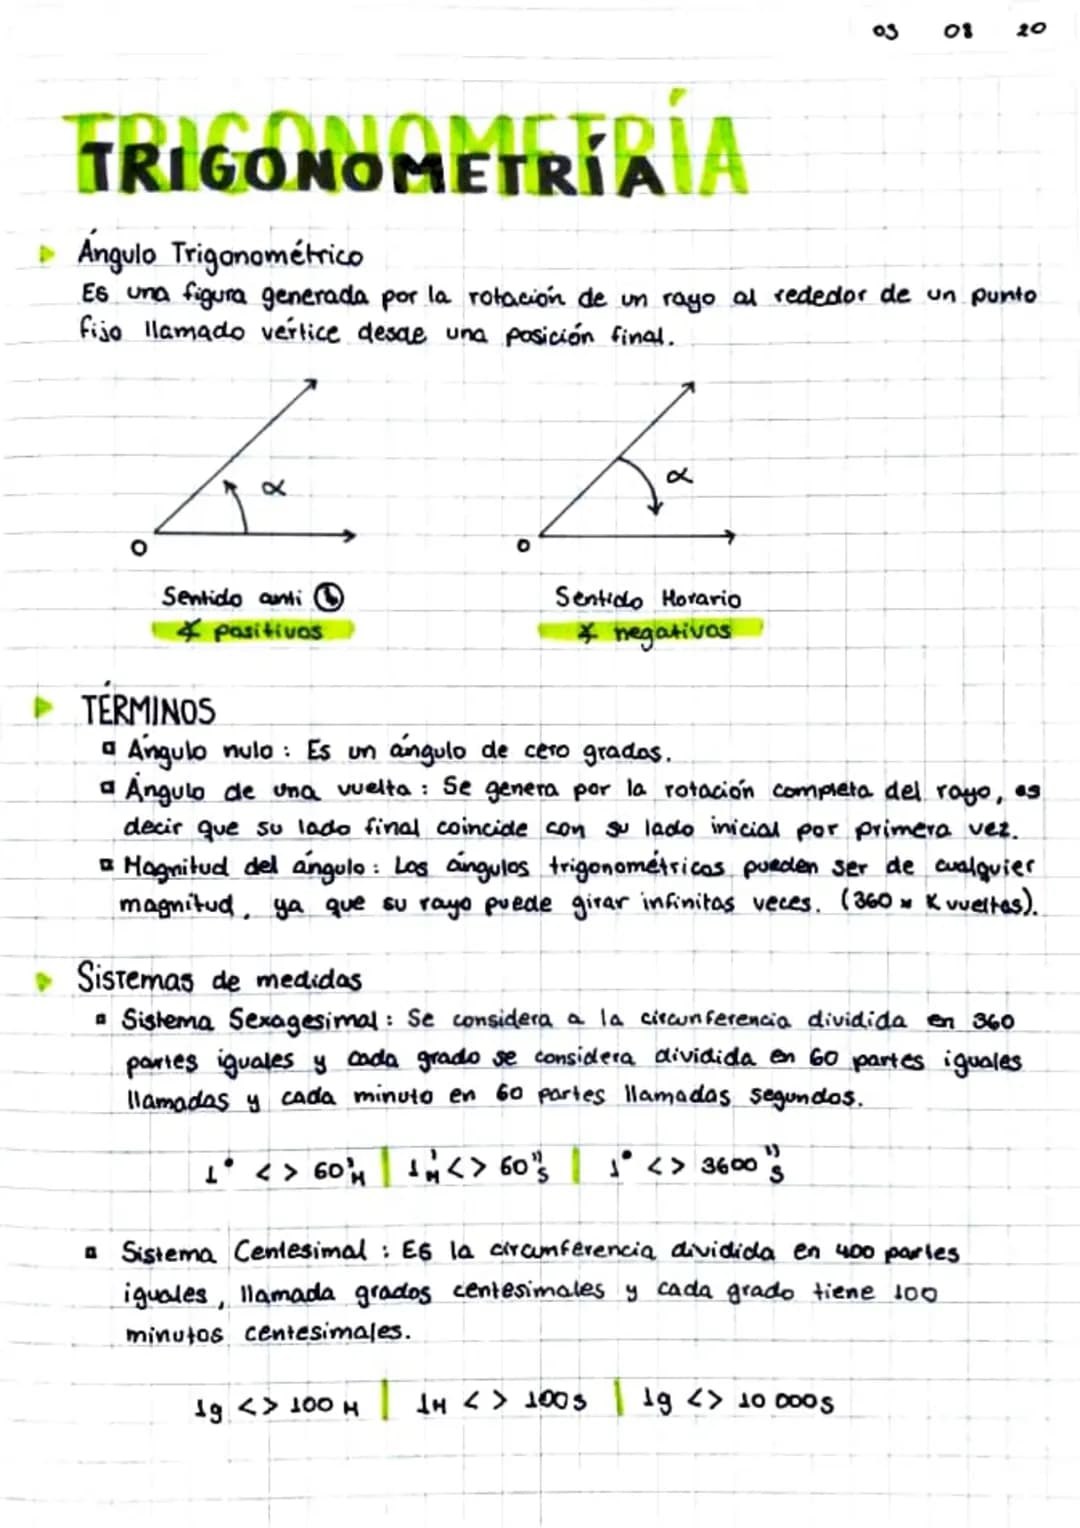 03 08 20
TRIGONOMETRÍA
TRIGONOMETRÍA
Ángulo Trigonométrico
Es una figura generada por la rotación de un rayo al rededor de un punto
fijo llamado vértice desde una posición final.
α
α
O
O
Sentido anti
Sentido Horario
∡ positivos
∡ negativos
TÉRMINOS
Ángulo nulo : Es un ángulo de cero grados.
Ángulo de una vuelta : Se genera por la rotación completa del rayo, es
decir que su lado final coincide con su lado inicial por primera vez.
Magnitud del ángulo : Los ángulos trigonométricos pueden ser de cualquier
magnitud, ya que su rayo puede girar infinitas veces. (360 x K vueltas).
Sistemas de medidas
Sistema Sexagesimal : Se considera a la circunferencia dividida en 360
partes iguales y cada grado se considera dividida en 60 partes iguales
llamadas y cada minuto en 60 partes llamadas segundos.
1° <> 60'M | 1'M <> 60''S | 1° <> 3600''S
Sistema Centesimal : Es la circunferencia dividida en 400 partes
iguales, llamada grados centesimales y cada grado tiene 100
minutos centesimales.
1g <> 100 M | 1M <> 100S | 1g <> 10 000S